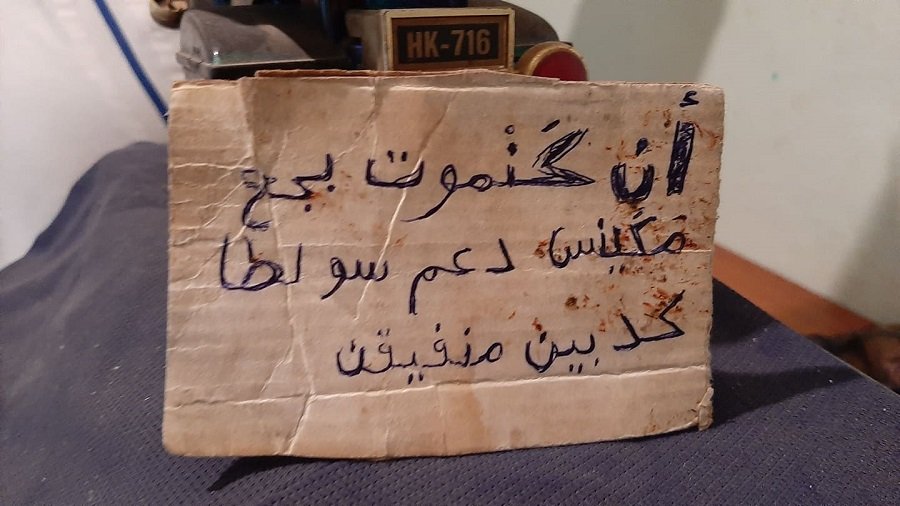 HK-716
أن كَنْموت بجع
مكينس دعم سولطا
كدبين منفيقن